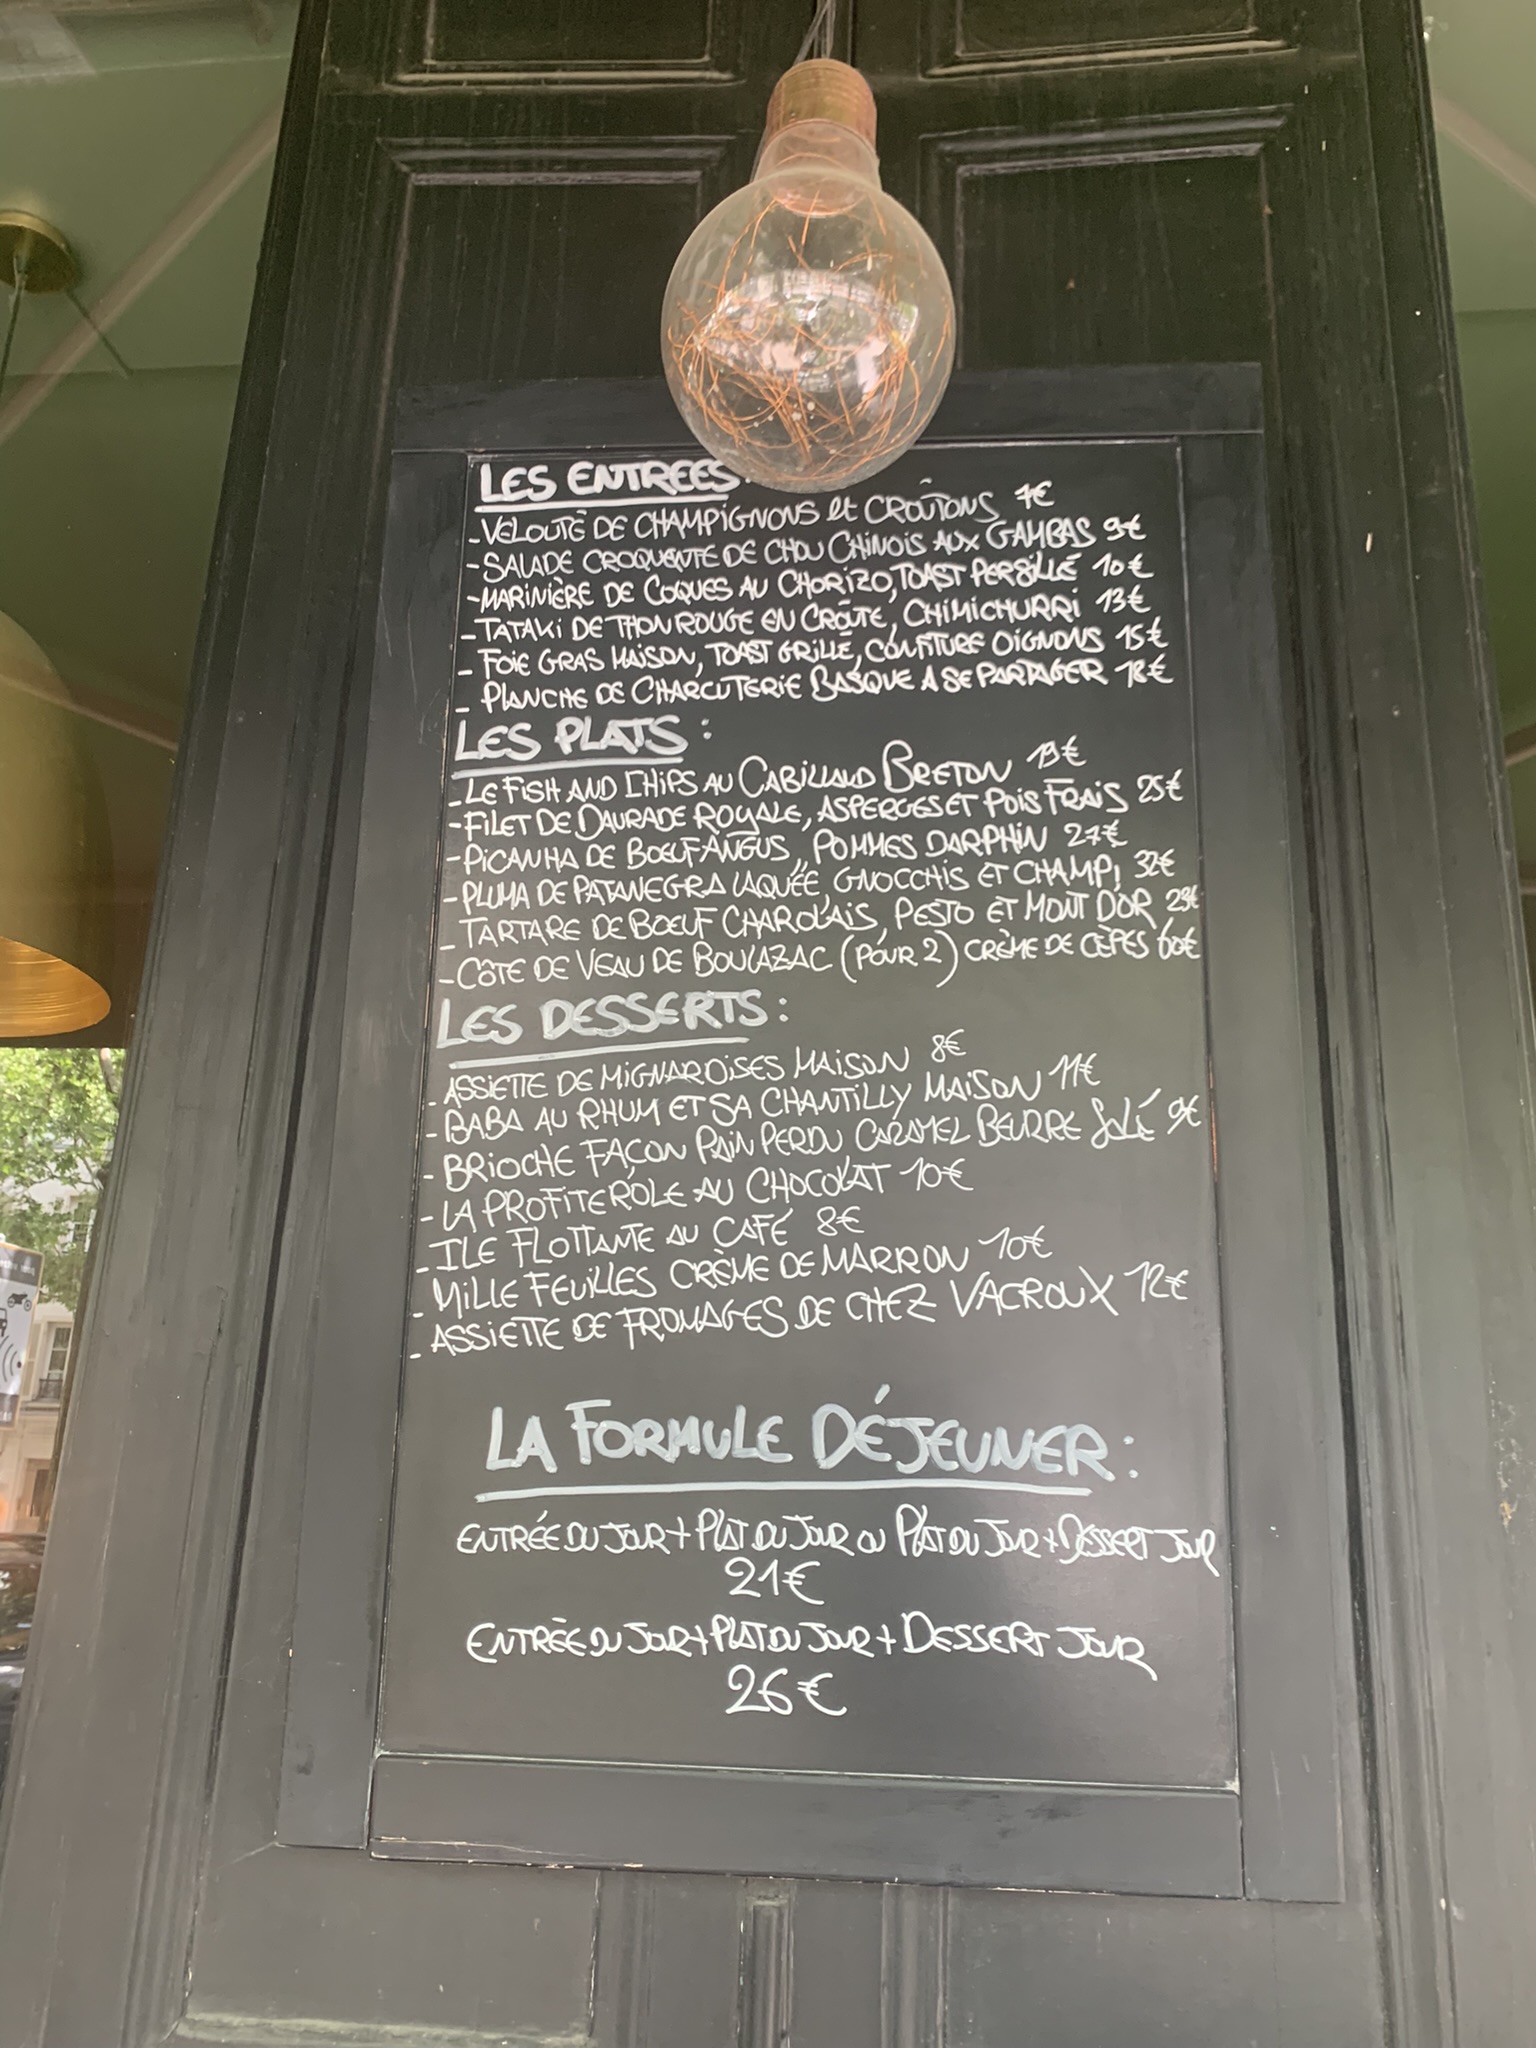 LES ENTREES:
- VELOUTÉ DE CHAMPIGNONS et CROÛTONS 7€
- SALADE CROQUANTE DE CHOU CHINOIS AUX GAMBAS 9€
- MARINIÈRE DE COQUES AU CHORIZO, TOAST PERSILLÉ 10€
- TATAKI DE THON ROUGE EN CROÛTE, CHIMICHURRI 13€
- FOIE GRAS MAISON, TOAST GRILLÉ, CONFITURE OIGNONS 15€
- PLANCHE DE CHARCUTERIE BASQUE A SE PARTAGER 18€
LES PLATS :
- LE FISH AND CHIPS AU CABILLAUD BRETON 19€
- FILET DE DAURADE ROYALE, ASPERGES ET POIS FRAIS 25€
- PICANHA DE BOEUF ANGUS, POMMES DARPHIN 27€
- PLUMA DE PATANEGRA LAQUÉE, GNOCCHIS ET CHAMPI 32€
- TARTARE DE BOEUF CHAROLAIS, PESTO ET MONT D'OR
- CÔTE DE VEAU DE BOULAZAC (POUR 2) CRÈME DE CÈPES 60€
LES DESSERTS :
- ASSIETTE DE MIGNARDISES MAISON 8€
- BABA AU RHUM ET SA CHANTILLY MAISON 11€
- BRIOCHE FAÇON PAIN PERDU CARAMEL BEURRE Salé 9€
- LA PROFITEROLE AU CHOCOLAT 10€
- ILE FLOTTANTE AU CAFÉ 8€
- MILLE FEUILLES CRÈME DE MARRON 10€
- ASSIETTE DE FROMAGES DE CHEZ VACROUX 12€
LA FORMULE DÉJEUNER :
ENTRÉE DU JOUR + PLAT DU JOUR OU PLAT DU JOUR + DESSERT JOUR
21€
ENTRÉE DU JOUR + PLAT DU JOUR + DESSERT JOUR
26€